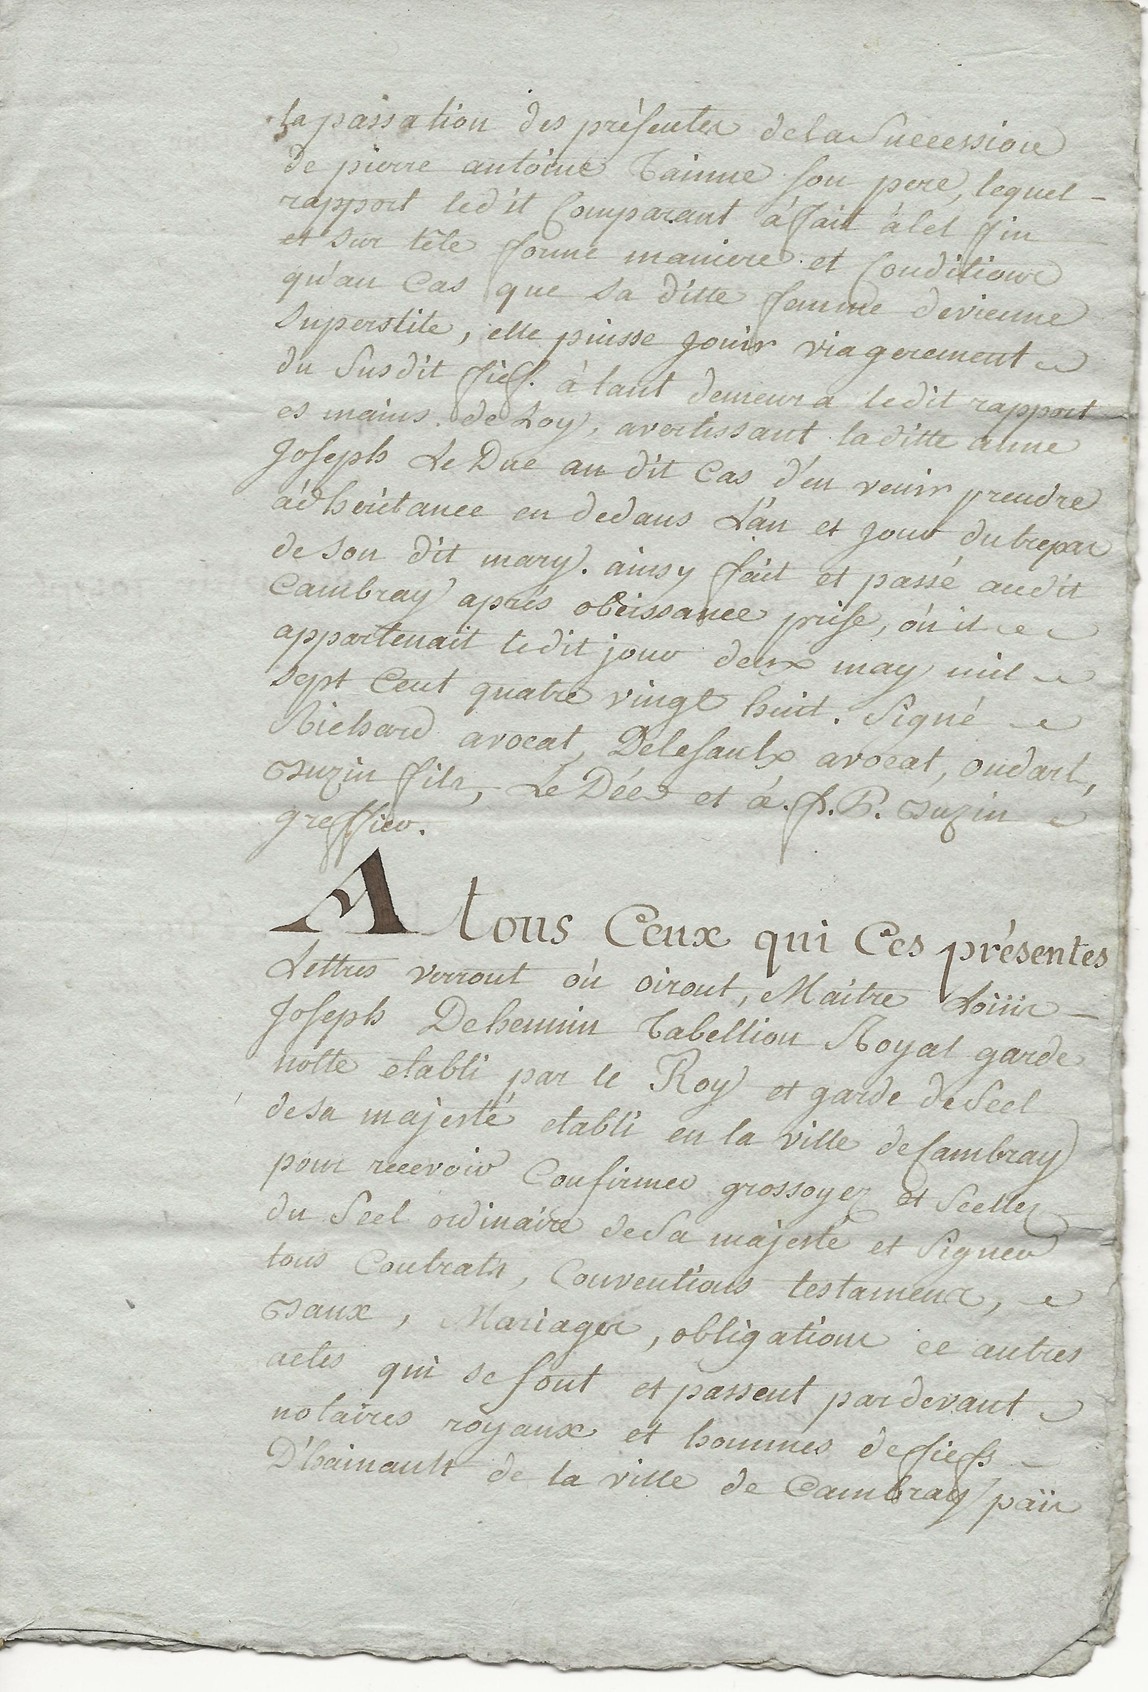 la passation des présentes de la Succession
de pierre antoine Tainne son pere, lequel
rapport ledit Comparant à fait à lel fin
et sur tele forme maniere et Conditions
qu'au Cas que sa ditte femme devienne
superstite, elle puisse jouir viagerement
du susdit fief. à tant demeura ledit rapport
es mains de Loy, avertissant laditte anne
Joseph Le Duc au dit Cas d'en venir prendre
adheritance en dedans L'an et jour du trepas
de son dit mary. ainsy fait et passé audit
Cambray après obeissance prise, où il
appartenait ledit jour deux may mil
sept Cent quatre vingt huit. Signé
Richard avocat, Delesaulx avocat, oudart,
suzin fils, Le Dée et a. f. P. suzin
greffier.
A tous Ceux qui Ces présentes
Lettres verront où oiront, Maitre Loüis
Joseph Dehennin Tabellion Royal garde
notte etabli par le Roy et garde de Seel
de sa majesté etabli en la ville de Cambray
pour recevoir Confirmer grossoyer et Seeller
du Seel ordinaire de Sa majesté et Signer
tous Contrats, Conventions testamens,
Baux, Mariages, obligations ee autres
actes qui se font et passent pardevant
notaires royaux et hommes de fiefs
D'hainault de la ville de Cambray païs